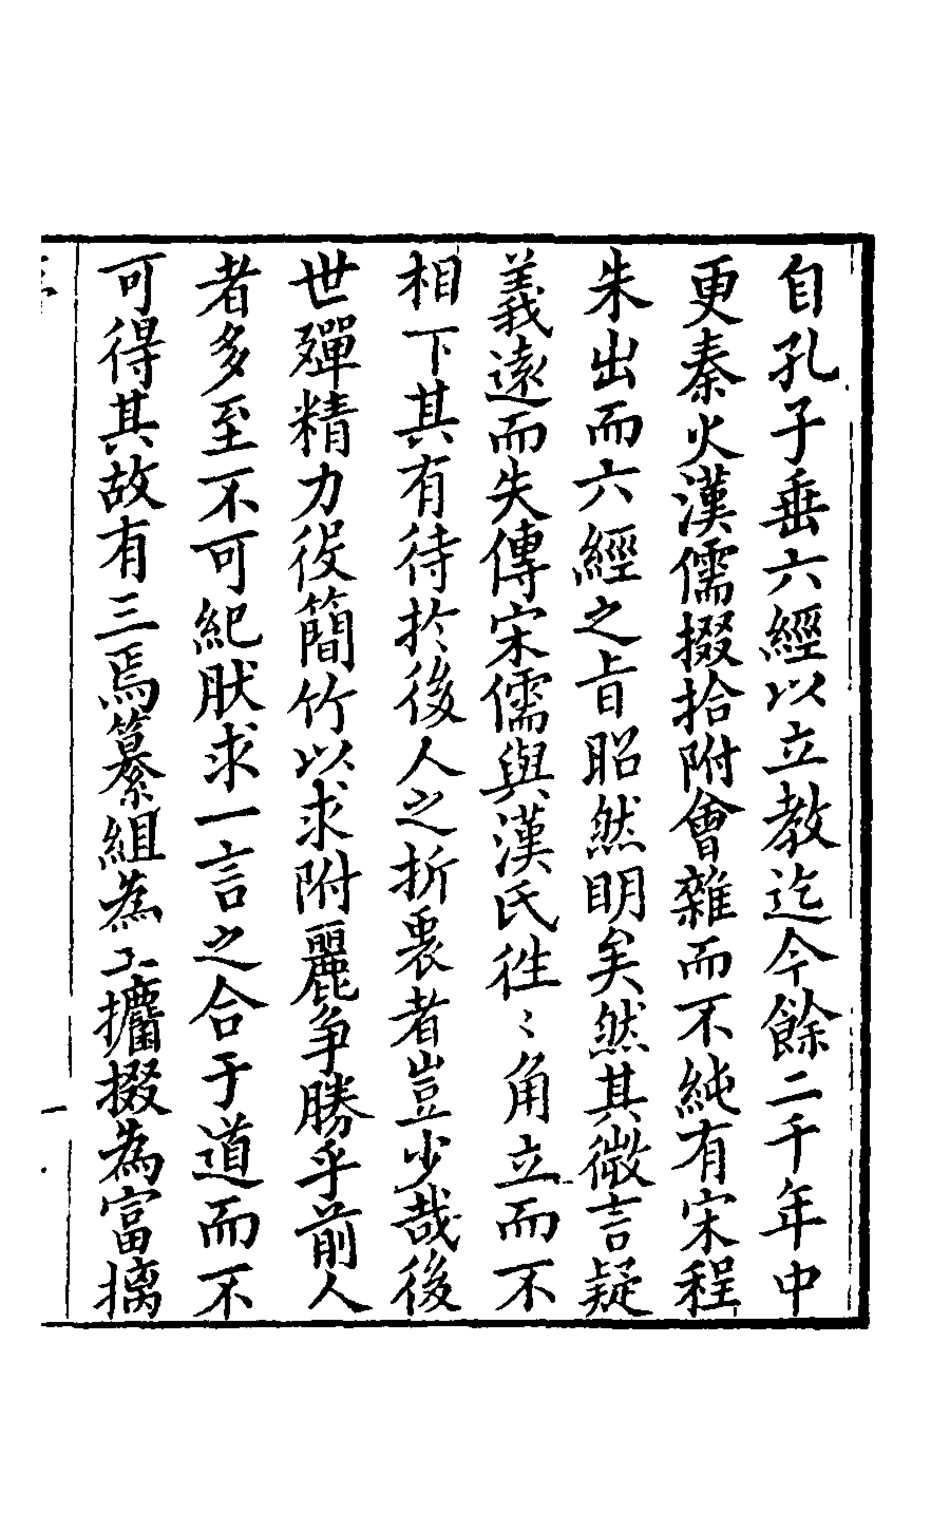 自孔子垂六經以立教迄今餘二千年中
更秦火漢儒掇拾附會雜而不純有宋程
朱出而六經之旨昭然明矣然其微言疑
義遠而失傳宋儒與漢氏徃〻角立而不
相下其有待於後人之折衷者豈少哉後
世殫精力役簡竹以求附麗争勝乎前人
者多至不可紀肰求一言之合于道而不
可得其故有三焉纂組為工攟掇為富摛